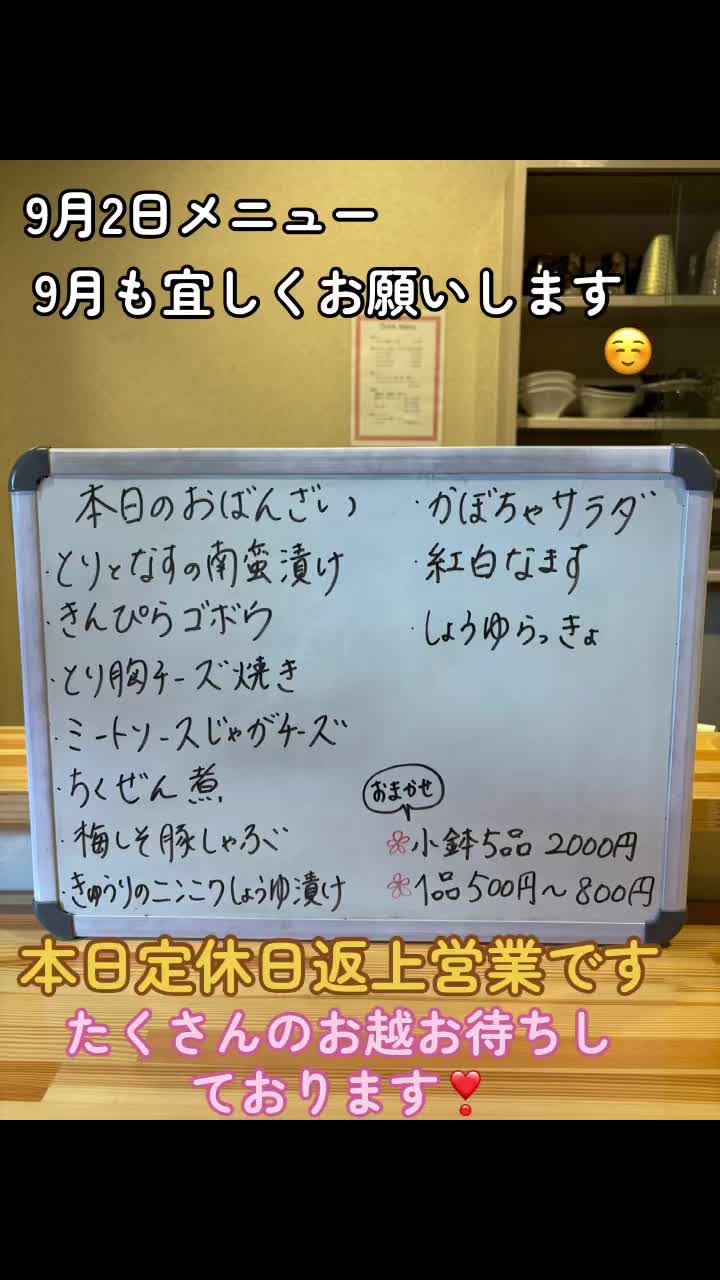 9月2日メニュー
9月も宜しくお願いします
本日のおばんざい
・とりとなすの南蛮漬け
・きんぴらゴボウ
・とり胸チーズ焼き
・ミートソースじゃがチーズ
・ちくぜん煮
・梅しそ豚しゃぶ
・きゅうりのニンニクしょうゆ漬け
・かぼちゃサラダ
・紅白なます
・しょうゆらっきょ
おまかせ
小鉢5品 2000円
1品500円〜800円
本日定休日返上営業です
たくさんのお越お待ちし
ております❣